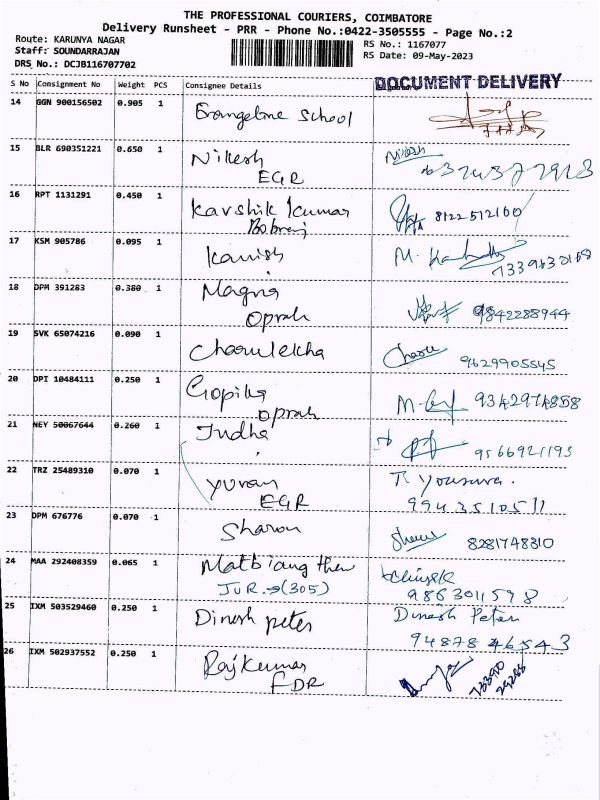 THE PROFESSIONAL COURIERS, COIMBATORE
Delivery Runsheet - PRR - Phone No.:0422-3505555 - Page No.:2
Route: KARUNYA NAGAR
Staff: SOUNDARRAJAN
DRS No.: DCJB116707702
RS No.: 1167077
RS Date: 09-May-2023
DOCUMENT DELIVERY
S No Consignment No Weight PCS Consignee Details
14 GGN 900156502 0.905 1 Evangeline School
15 BLR 690351221 0.650 1 Nikesh Nikesh
EGR
16 RPT 1131291 0.450 1 Kavshik Kumar 8122512160
17 KSM 905786 0.095 1 Kanish M.
18 DPM 391283 0.380 1 Magna 9842288944
Oprah
19 SVK 65074216 0.090 1 Charulekha Charu 9629905545
20 DPI 10484111 0.250 1 Gopika M. 9342974858
Oprah
21 NEY 50067644 0.260 1 Indha 9566921193
22 TRZ 25489310 0.070 1 Yuvan
EGR 9943510511
23 DPM 676776 0.070 1 Sharon 8281748310
24 MAA 292408359 0.065 1
JUR → (305) 9863011598
25 IXM 503529460 0.250 1 Dinesh peter Dinesh Peter
9487846543
26 IXM 502937552 0.250 1 Rajkumar
FDR 73390
29288